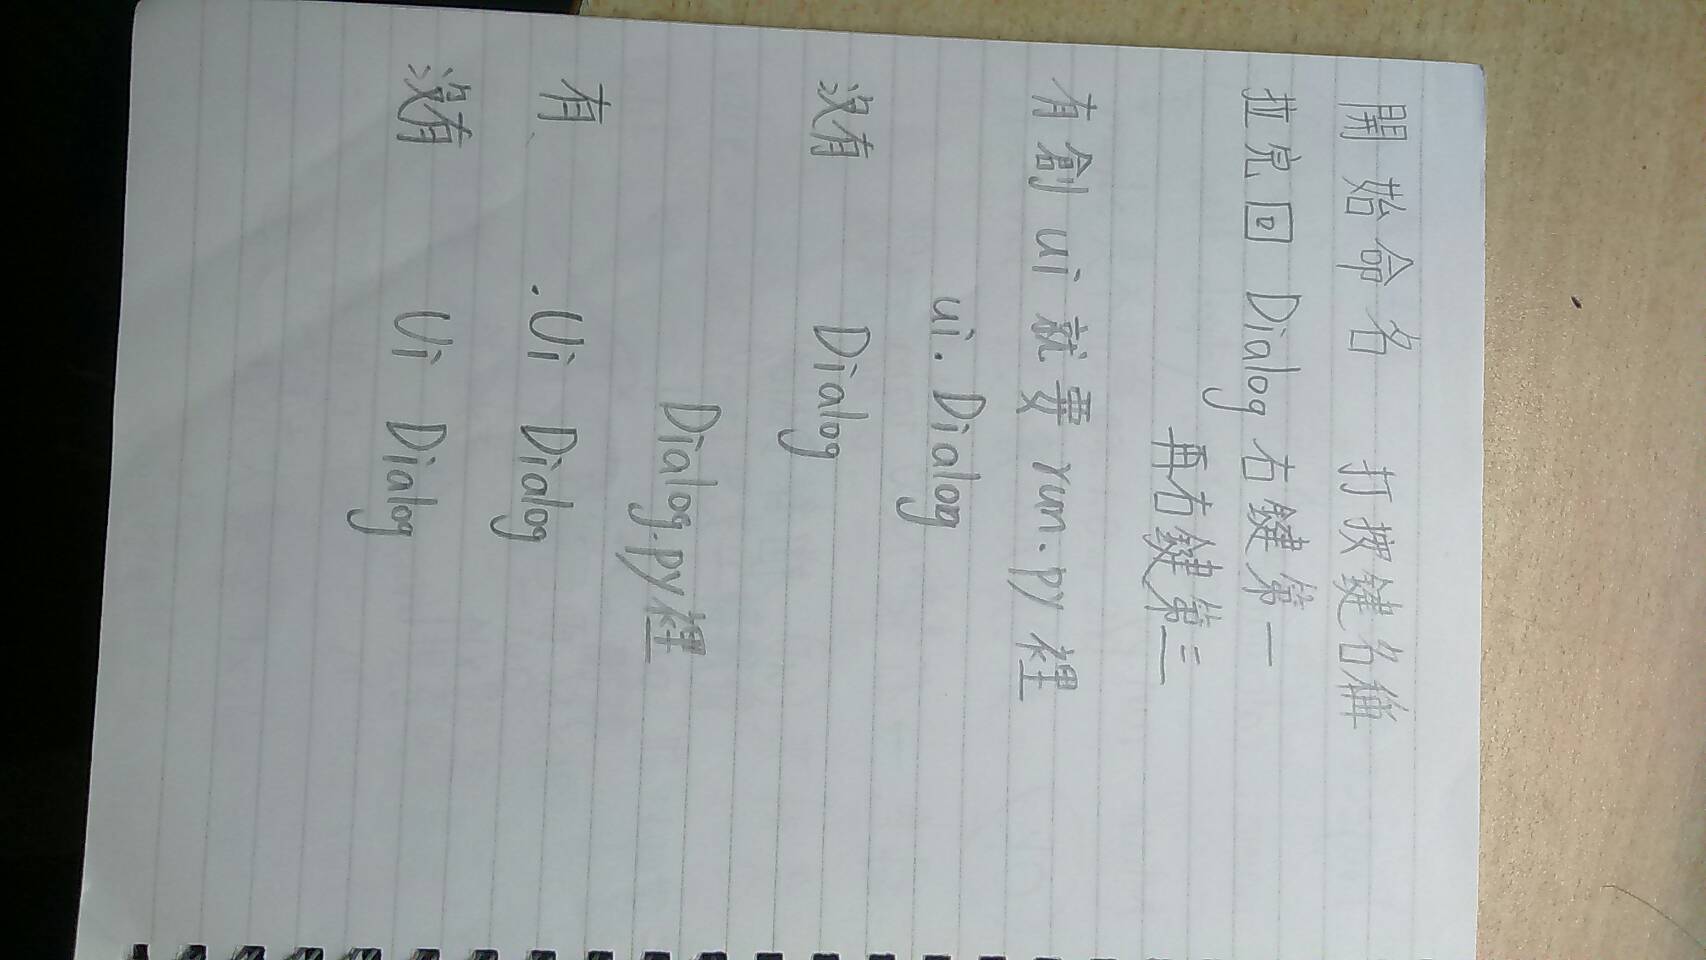 開始命名 打按鍵名稱
拉完回 Dialog 右鍵第一
再右鍵第三
有創 ui 就要 run.py 裡
ui. Dialog
沒有 Dialog
Dialog.py 裡
有 .Ui Dialog
沒有 Ui Dialog